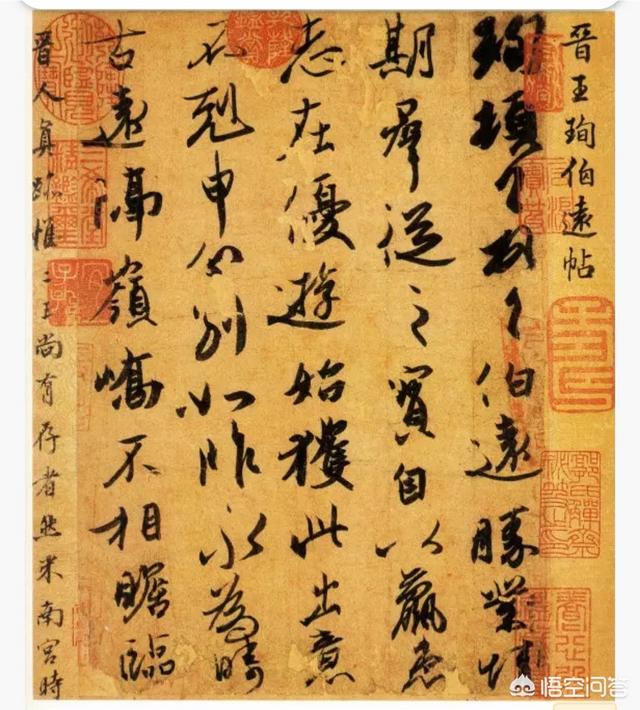 晉王珣伯遠帖
珣頓首頓首伯遠勝業情
期羣從之寶自以羸患
志在優遊始獲此出意
不剋申分別如昨永為疇
古遠隔嶺嶠不相瞻臨
晉人真跡惟二王尚有存者然米南宮時
悟空问答